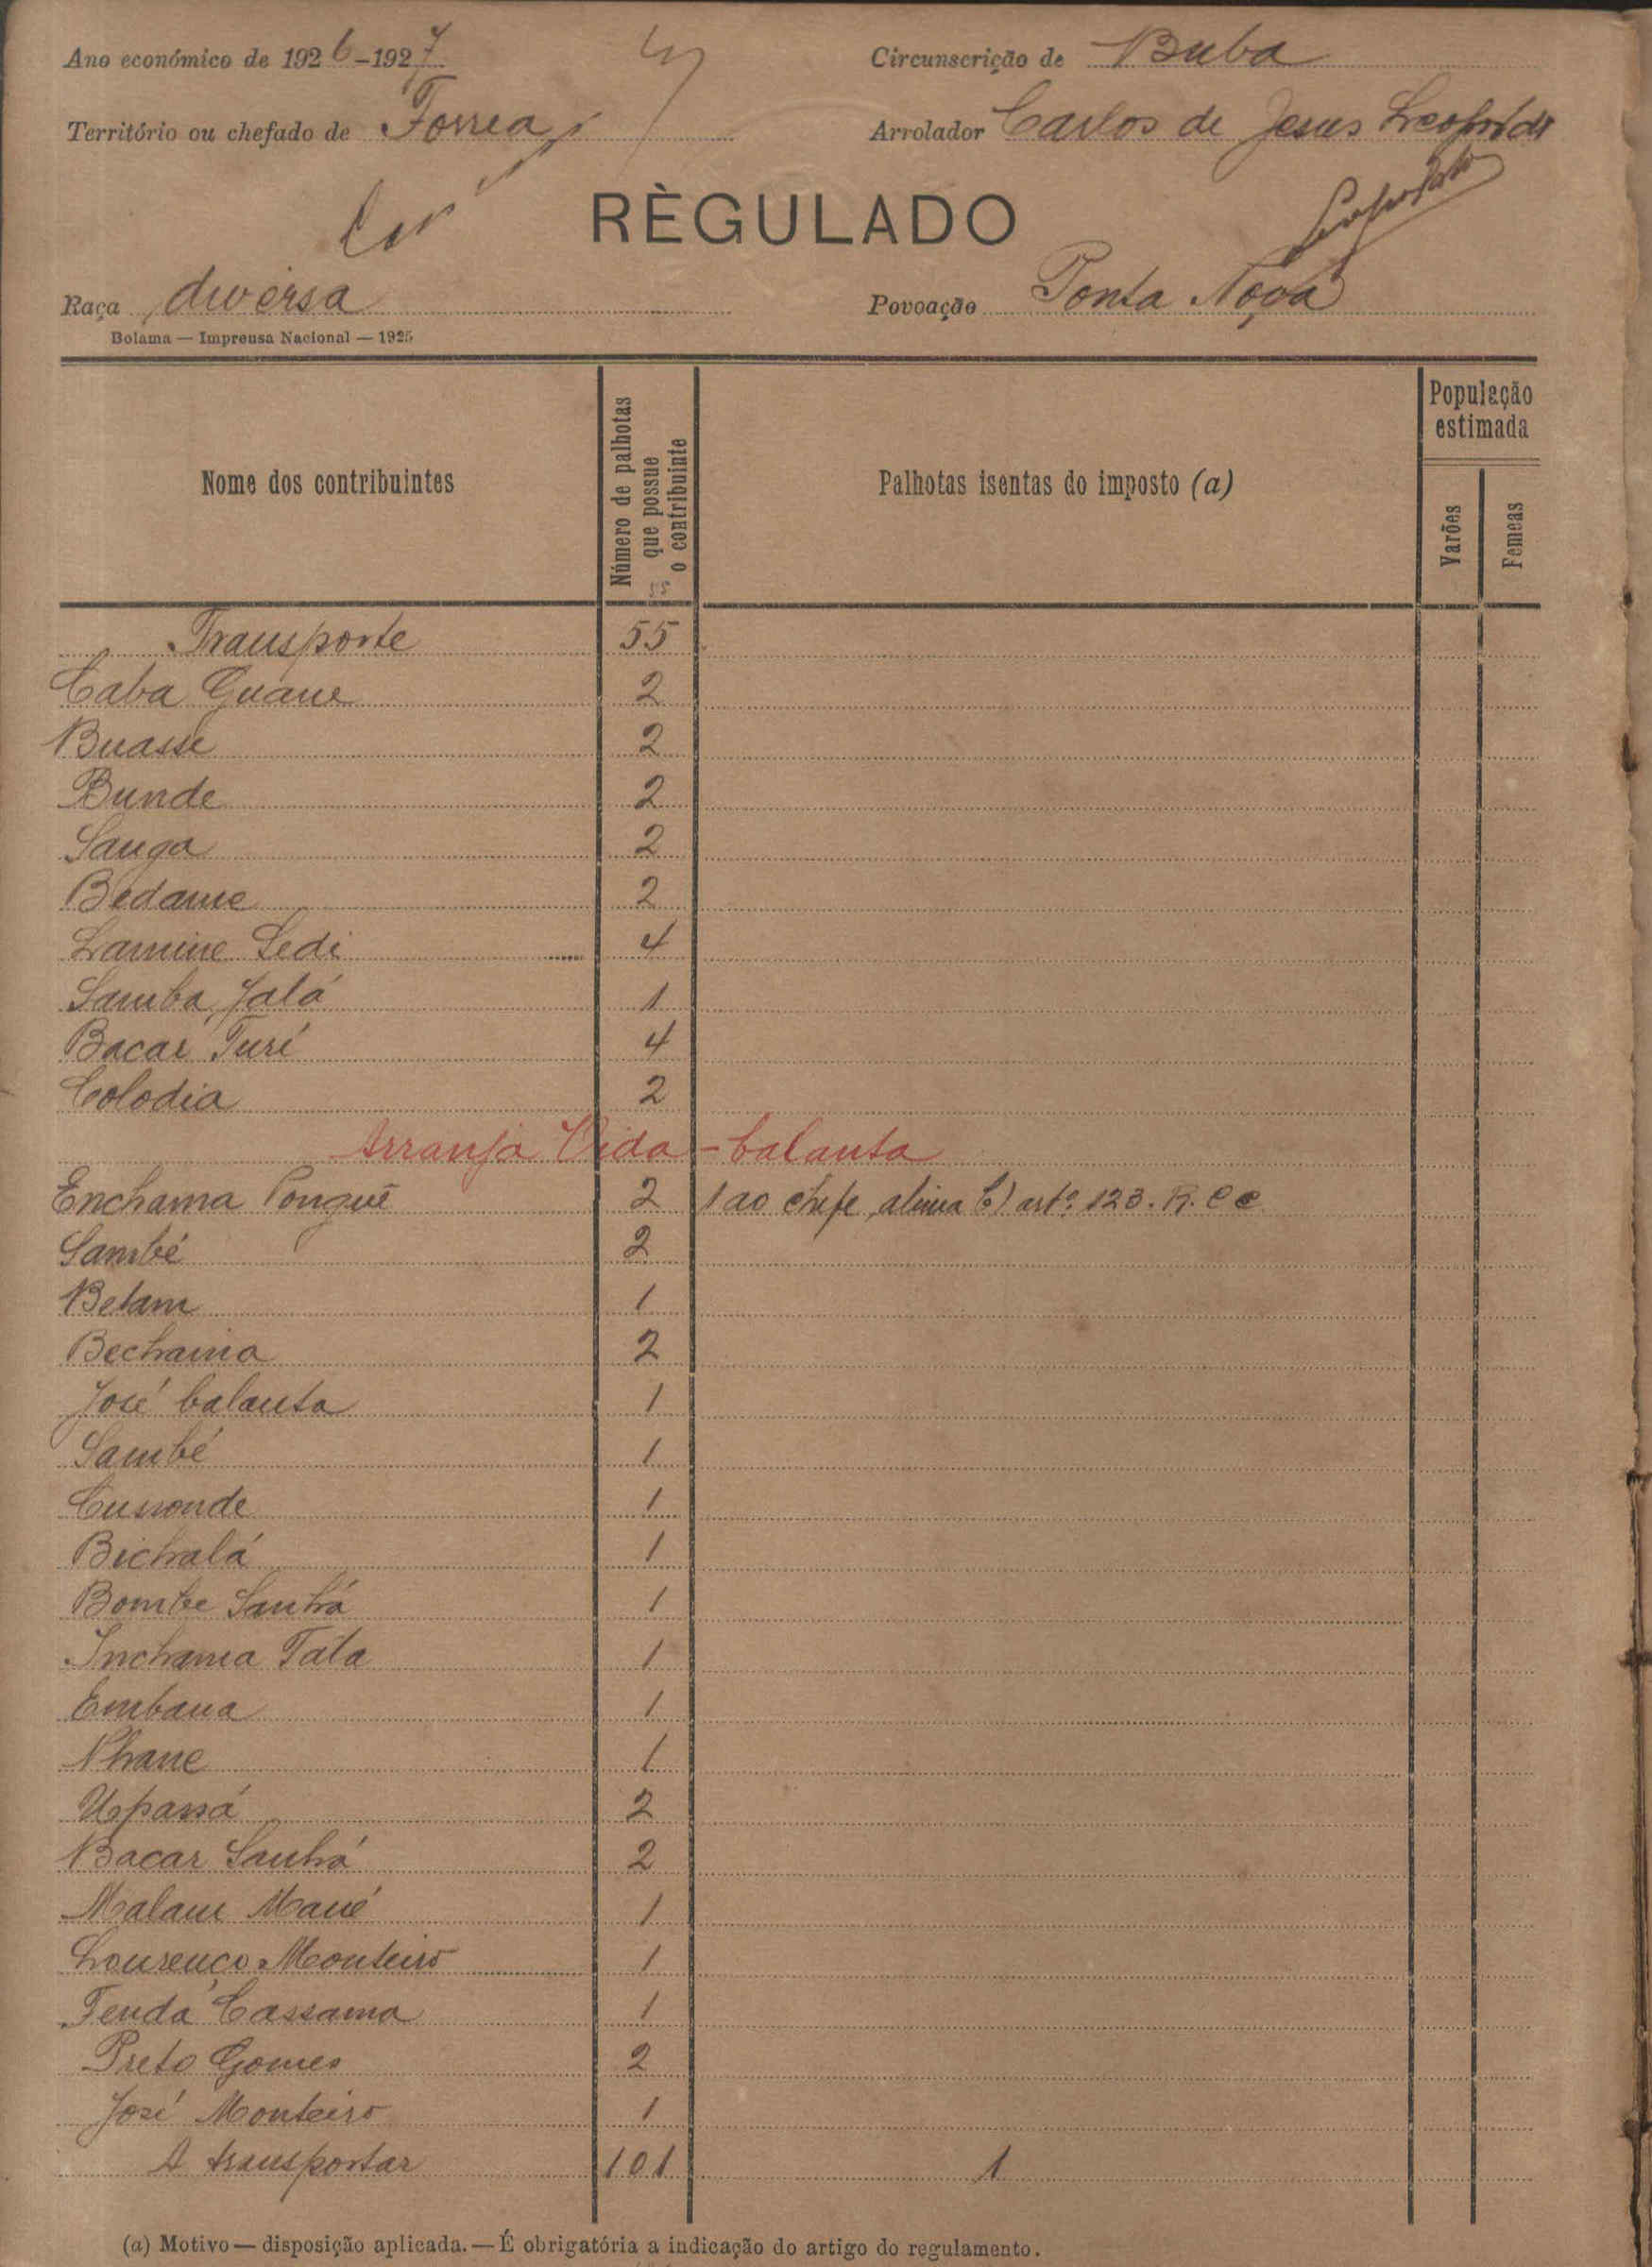 Ano económico de 1926-1927
Circunscrição de Buba
Território ou chefado de Forrea
Arrolador Carlos de Jesus Leopoldo
RÈGULADO
Raça diversa
Povoação Ponta Nova
Bolama — Imprensa Nacional — 1925
Nome dos contribuintes
Número de palhotas que possue o contribuinte
Palhotas isentas do imposto (a)
População estimada
Varões
Femeas
Transporte 55
Caba Quane 2
Buasse 2
Bunde 2
Sanga 2
Bedame 2
Lamine Sedi 4
Samba Jaló 1
Bacar Turé 4
Colodia 2
Arranja Vida - balanta
Enchama Pongue 2 1 ao chefe, alinea b) artº 123. R. C c
Sambé 2
Betam 1
Bechaina 2
José balanta 1
Sambé 1
Cussonde 1
Bichalá 1
Bombe Sanhá 1
Inchama Tata 1
Embana 1
Nhane 1
Upassá 2
Bacar Sanhá 2
Malam Mané 1
Lourenço Monteiro 1
Tenda Cassama 1
Preto Gomes 2
José Monteiro 1
A transportar 101 1
(a) Motivo — disposição aplicada. — É obrigatória a indicação do artigo do regulamento.